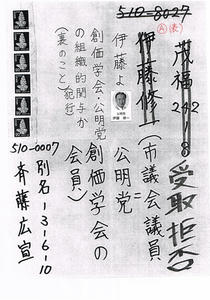 510-8027
Ⓐ(表)
茂福242
伊藤修一
(市議会議員
受取拒否
公明党=
創価学会の
会員)
伊藤よ
創価学会、公明党
の組織的関与か
(裏のこと)(犯行)
510-0007
別名1-3-6-10
斉藤広宣